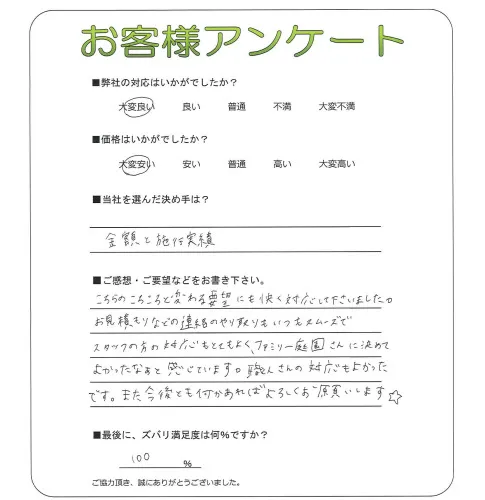 お客様アンケート
■弊社の対応はいかがでしたか？
大変良い 良い 普通 不満 大変不満
■価格はいかがでしたか？
大変安い 安い 普通 高い 大変高い
■当社を選んだ決め手は？
金額と施行実績
■ご感想・ご要望などをお書き下さい。
こちらのころころと変わる要望にも快く対応して下さいました。
お見積もりなどの連絡のやり取りもいつもスムーズで
スタッフの方の対応もとてもよく、ファミリー庭園さんに決めて
よかったなぁと感じています。職人さんの対応もよかった
です。また今後とも何かあればよろしくお願いします☆
■最後に、ズバリ満足度は何％ですか？
100 ％
ご協力頂き、誠にありがとうございました。